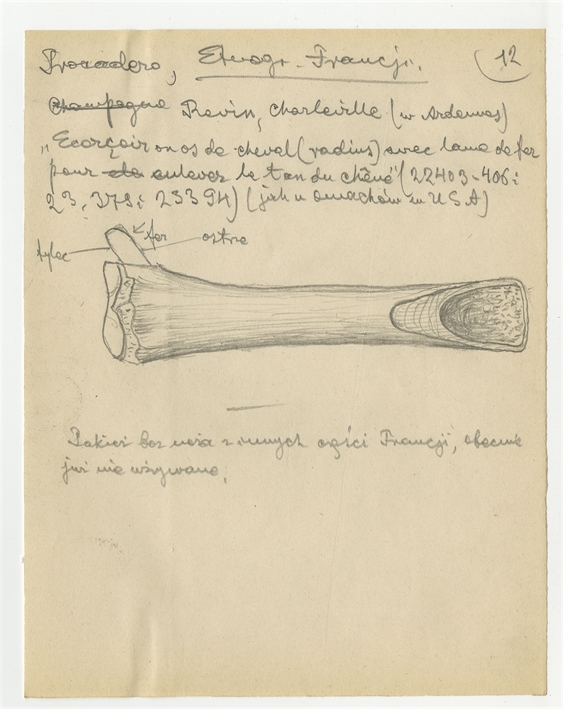 Trocadero, Etnogr. Francji. 12
Champagne Revin, Charleville (w Ardennes)
„Ecorçoir on os de cheval (radius) avec lame de fer
pour enlever le tan du chêne" (22403-406 i
23.378 i 23394) (jak u omachów w USA)
tylec fer ostrze
Takież bez noża z innych części Francji, obecnie
już nie używane.